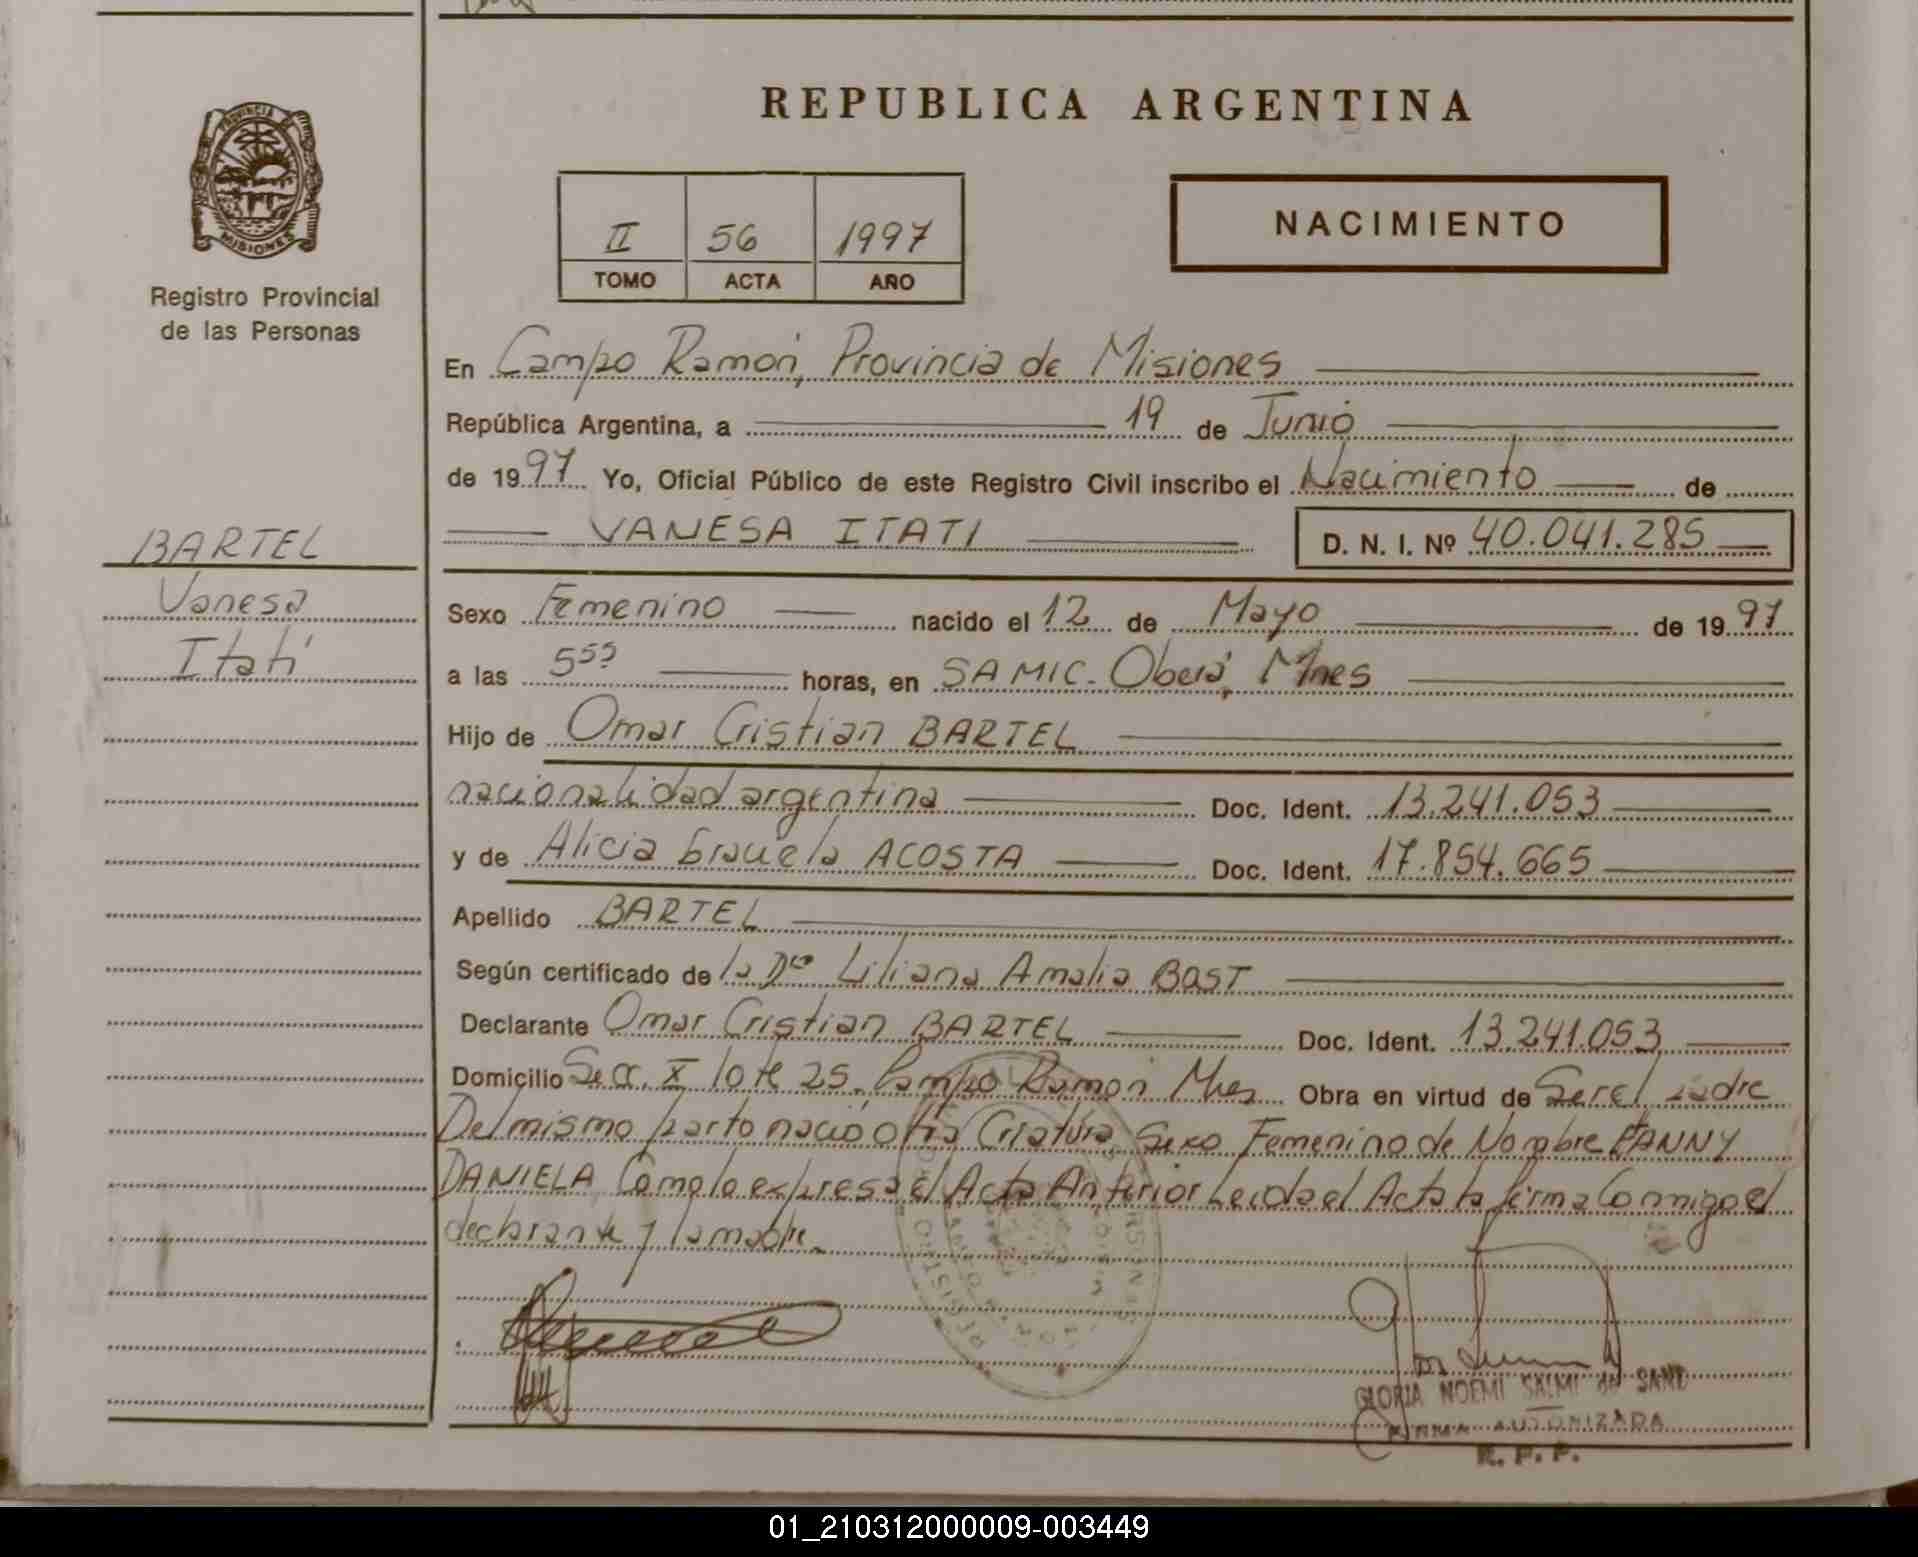 REPUBLICA ARGENTINA
PROVINCIA DE
MISIONES
Registro Provincial
de las Personas
II 56 1997
TOMO ACTA AÑO
NACIMIENTO
En Campo Ramón, Provincia de Misiones
República Argentina, a 19 de Junio
de 1997 Yo, Oficial Público de este Registro Civil inscribo el Nacimiento de
VANESA ITATI D. N. I. Nº 40.041.285
BARTEL
Vanesa
Itatí
Sexo Femenino nacido el 12 de Mayo de 1997
a las 5⁵⁵ horas, en SAMIC. Oberá, Mnes
Hijo de Omar Cristian BARTEL
nacionalidad argentina Doc. Ident. 13.241.053
y de Alicia Graciela ACOSTA Doc. Ident. 17.854.665
Apellido BARTEL
Según certificado de la Dra Liliana Amalia BAST
Declarante Omar Cristian BARTEL Doc. Ident. 13.241.053
Domicilio Secc. X lote 25. Campo Ramon Mnes Obra en virtud de Ser el padre
Del mismo parto nació otra Criatura, Sexo Femenino de Nombre FANNY
DANIELA Como lo expresa el Acta Anterior Leida el Acta la firma Conmigo el
declarante y la madre.
GLORIA NOEMI SALMI de SAND
FIRMA AUTORIZADA
R. P. P.
01_210312000009-003449